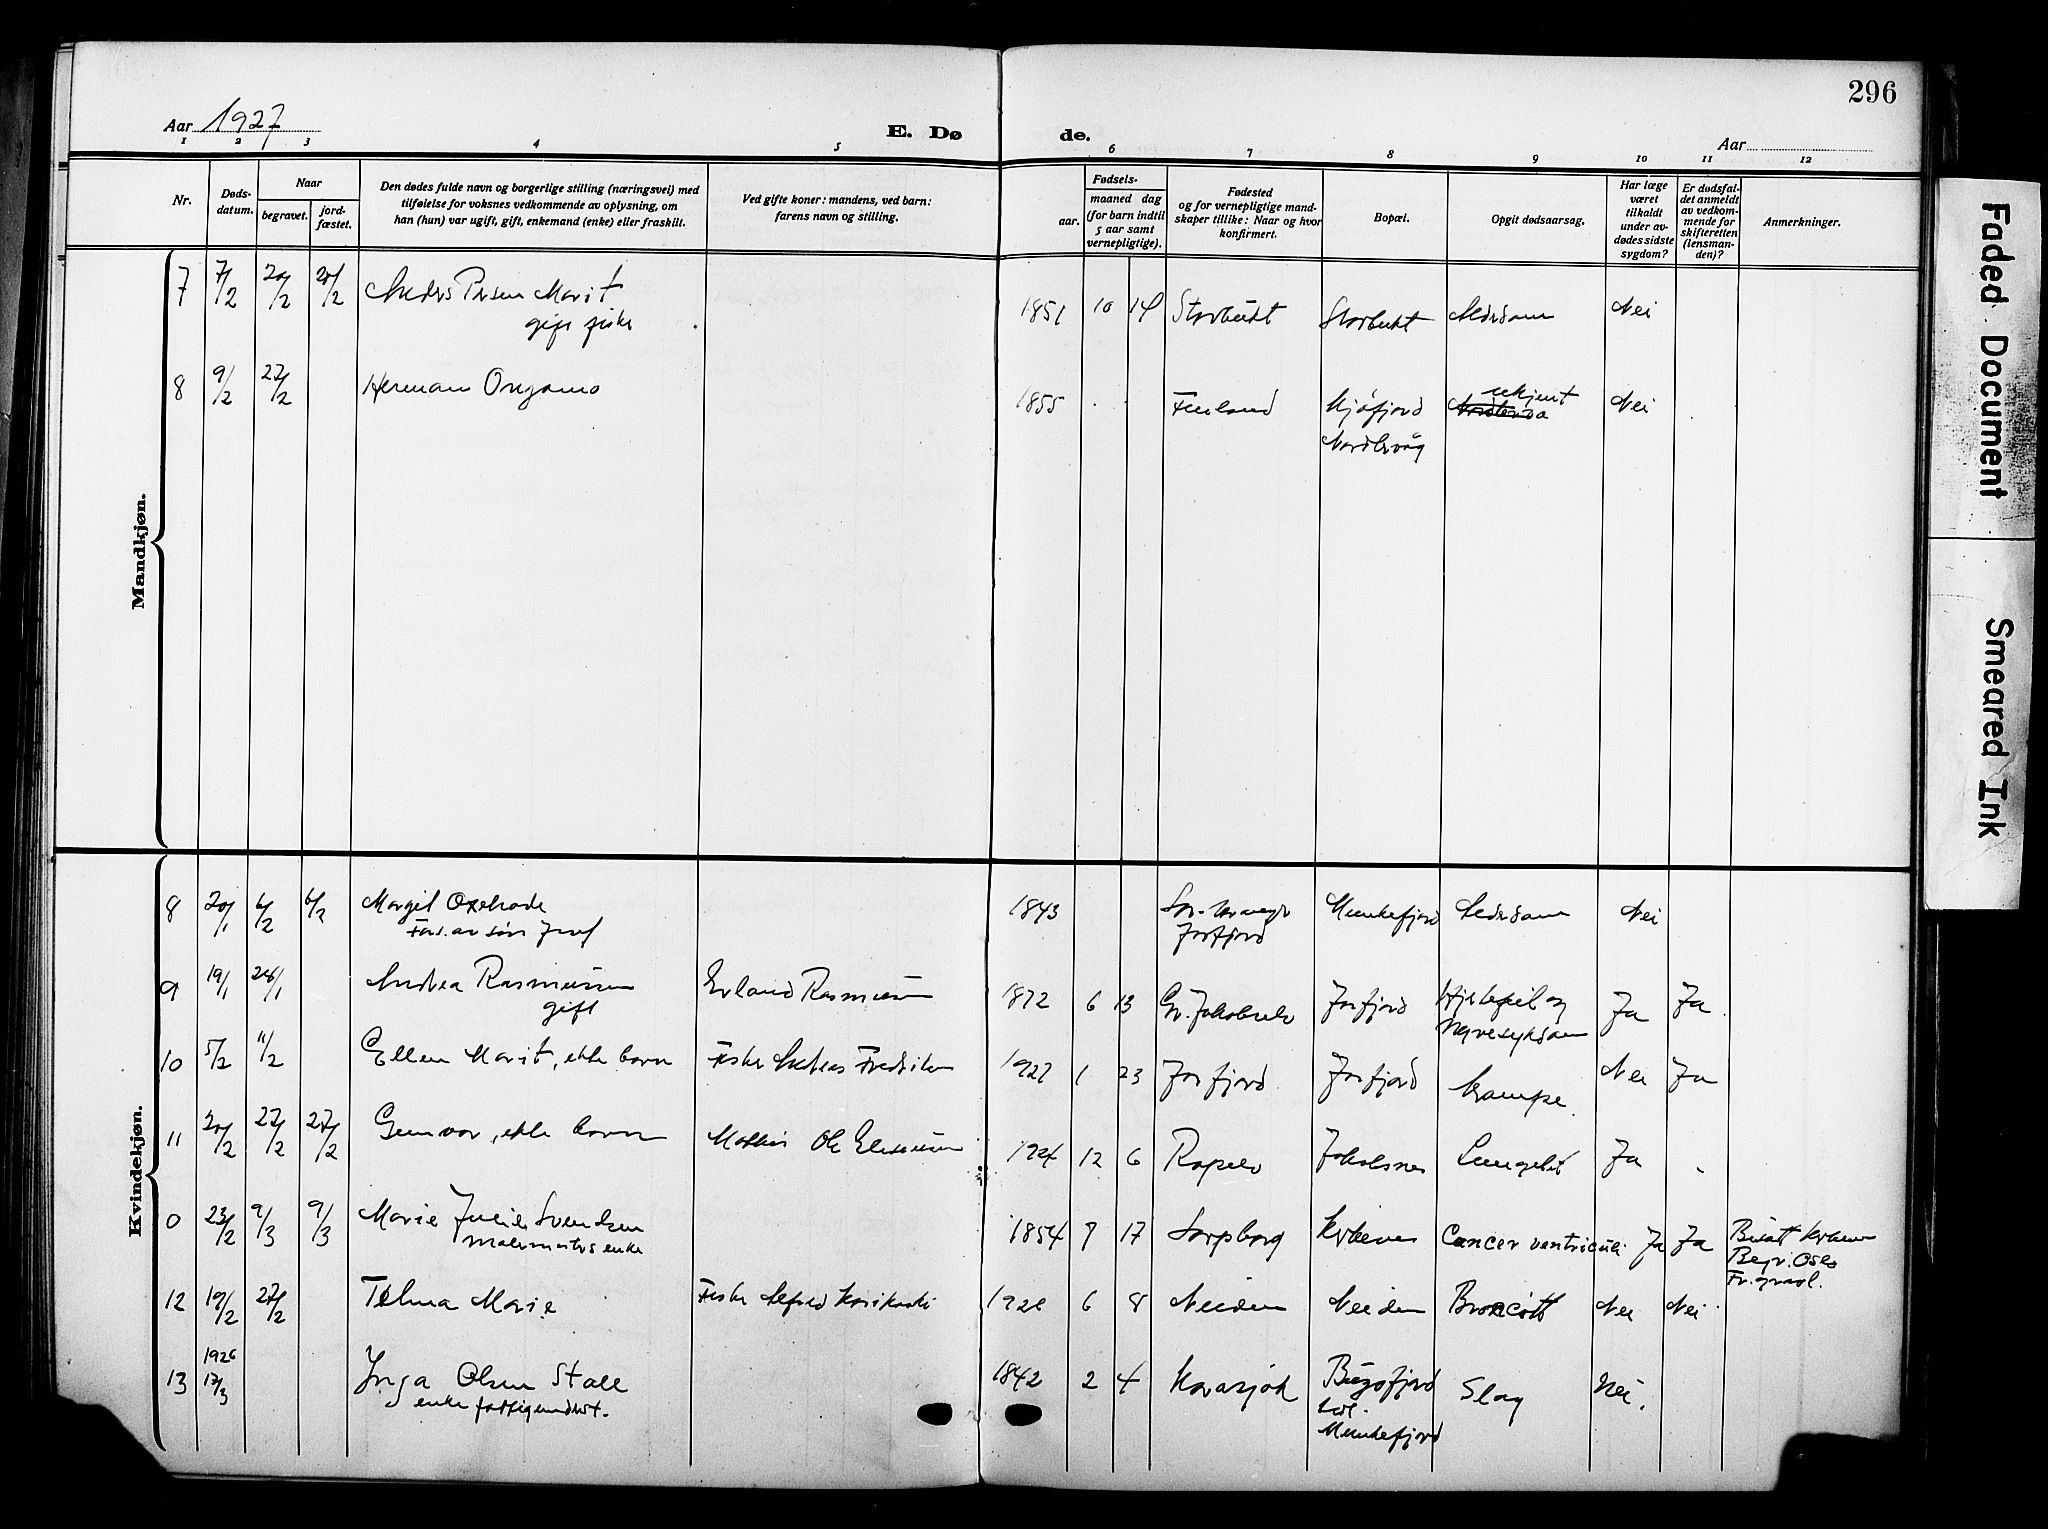 296
Aar 1927
E. Dø de.
Aar
1 2 3 4 5 6 7 8 9 10 11 12
Nr.
Døds-
datum.
Naar
begravet.
jord-
fæstet.
Den dødes fulde navn og borgerlige stilling (næringsvei) med
tilføielse for voksnes vedkommende av oplysning, om
han (hun) var ugift, gift, enkemand (enke) eller fraskilt.
Ved gifte koner: mandens, ved barn:
farens navn og stilling.
Fødsels-
aar. maaned dag
(for barn indtil
5 aar samt
vernepligtige).
Fødested
og for vernepligtige mand-
skaper tillike: Naar og hvor
konfirmert.
Bopæl.
Opgit dødsaarsag.
Har læge
været
tilkaldt
under av-
dødes sidste
sygdom?
Er dødsfal-
det anmeldt
av vedkom-
mende for
skifteretten
(lensman-
den)?
Anmerkninger.
Mandkjøn.
7 7/2 20/2 20/2 Anders Persen Marit 1851 10 14 Storbukt Storbukt Alderdom Nei
gift fisker
8 9/2 27/2 Herman Ongamo 1855 Finland Kjøfjord ukjent Nei
Nordlevåg
Kvindekjøn.
8 20/1 6/2 6/2 Margit 1843 Munkefjord Alderdom Nei
Fors. av søn Josef
Jarfjord
9 19/1 28/1 Andrea Rasmussen Erland Rasmussen 1872 6 13 Gr. Jakobselv Jarfjord Hjertefeil og Ja Ja
gift
Nyresykdom
10 5/2 11/2 Ellen Marit, ekte barn Fisker Andreas Fredriksen 1927 1 23 Jarfjord Jarfjord Krampe Nei Ja
11 20/2 27/2 27/2 Gunvor, ekte barn Ole Elisassen 1924 12 6 Ropelv Jakobsnes Lungebet Ja
0 23/2 9/3 9/3 Marie Julie Svendsen 1854 7 17 Sarpsborg Kirkenes Cancer ventriculi Ja Ja Bisatt Kirkenes
Malermesters enke
Begr. Oslo
Fr. gravl.
12 19/2 27/2 Telma Marie Fisker Alfred Karikoski 1926 6 8 Neiden Neiden Broncitt Nei Nei
13 1926
17/3 Inga Olsen Stall 1842 2 4 Karasjok Bugøfjord Slag Nei.
enke fattigunderst.
Munkefjord
Faded Document
Smeared Ink